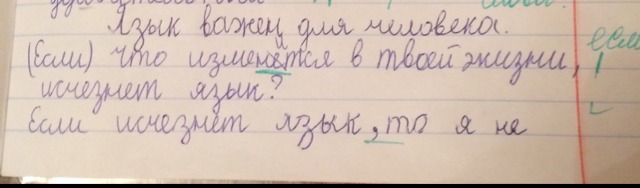 Язык важен для человека.
(Если) что изменётся в твоей жизни, если
исчезнет язык?
Если исчезнет язык, то я не